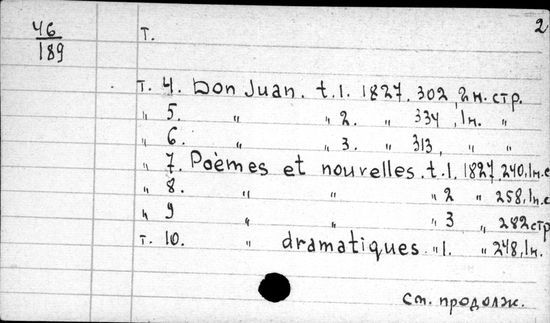 46 T. 2
189
т. 4. Don Juan. t.1. 1827. 302, 2н. стр.
" 5. " " 2. " 334, 1н. "
" 6. " " 3. " 313, " "
" 7. Poèmes et nouvelles. t.1. 1827, 240, 1н. с
" 8. " " " 2 " 258, 1н. с
" 9 " " " 3 " 282 стр
т. 10. " dramatiques. " 1. " 248, 1н.
См. продолж.